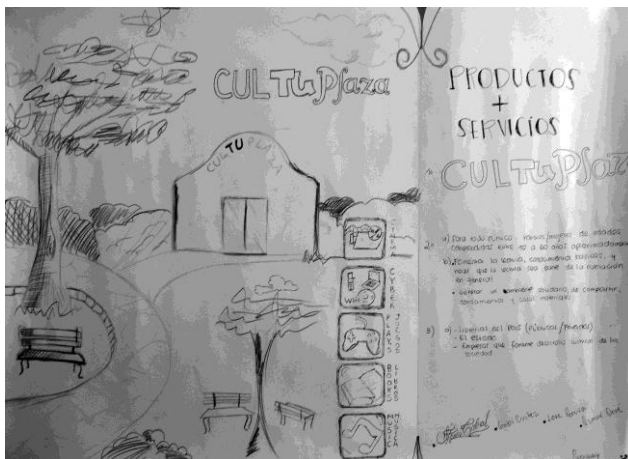 CULTuPlaza
CULTUPLAZA
CINEMA
CYBER
PLAYS
JUEGOS
BOOKS
LIBROS
MUSIC
MUSICA
PRODUCTOS
+
SERVICIOS
CULTuPlaza
a) Para todo público: hombres/mujeres de edades
comprendidas entre 15 a 60 años aproximadamente
b) Fomentar la lectura, conocimientos básicos, y
hacer que la lectura sea parte de la formación
en general
Generar un ambiente solidario, de compartir,
a) - Librerías del País (Públicas/Privadas)
- El estado
- Empresas que fomente desarrollo cultural de la
sociedad.